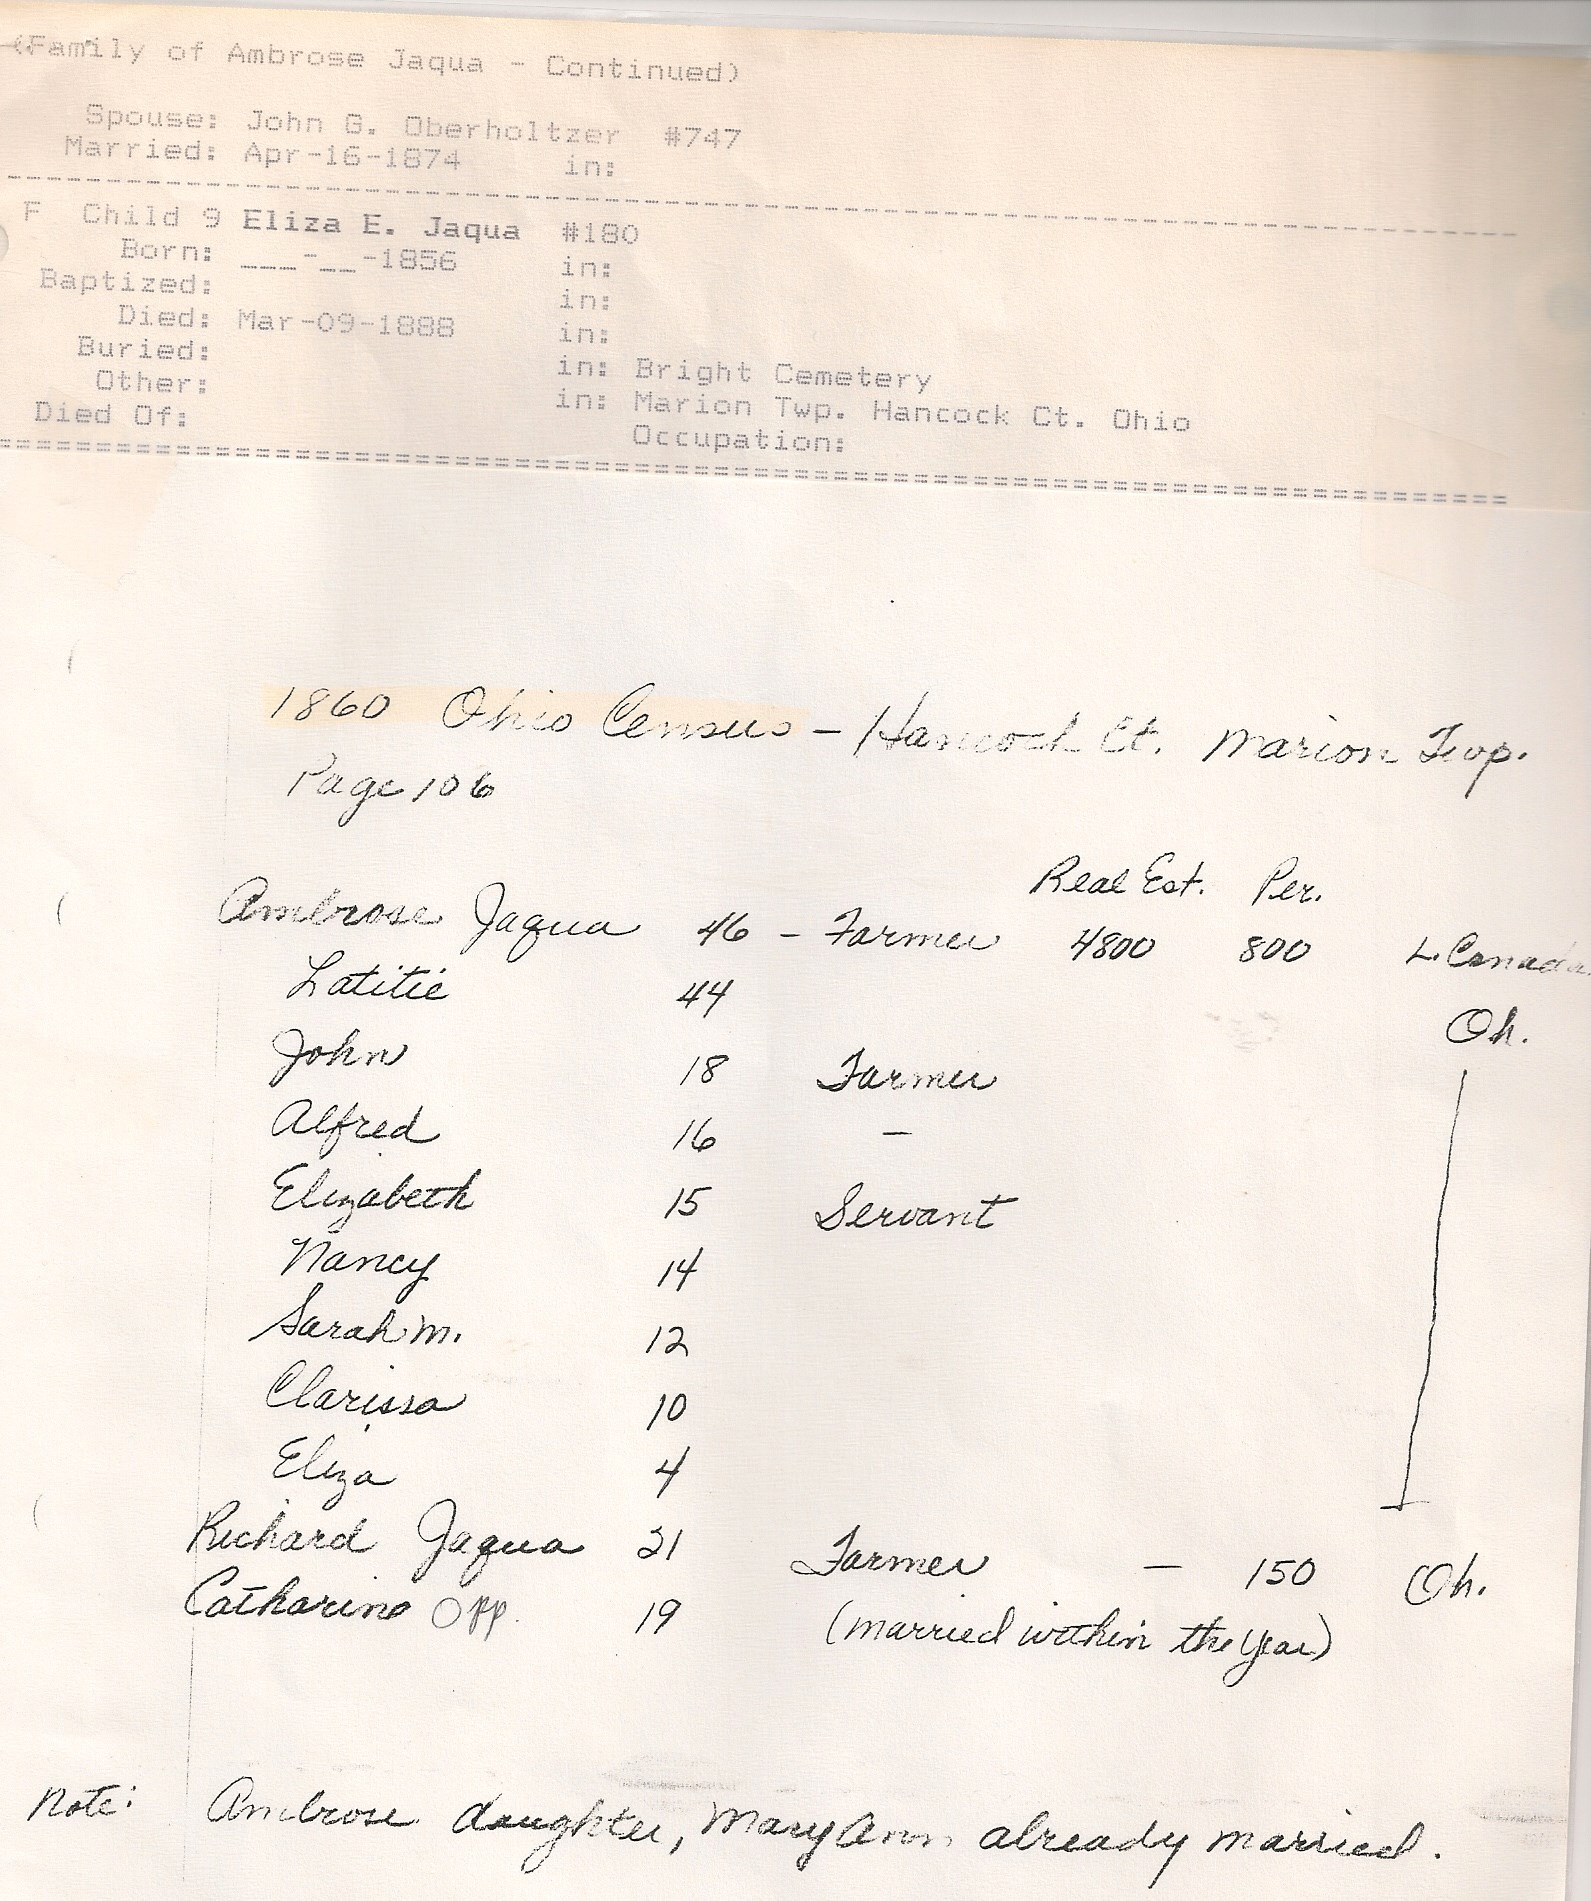 (Family of Ambrose Jaqua - Continued)
Spouse: John G. Oberholtzer #747
Married: Apr-16-1874 in:
F Child 9 Eliza E. Jaqua #180
Born: ___-__-1856 in:
Baptized: in:
Died: Mar-09-1888 in:
Buried: in: Bright Cemetery
Other: in: Marion Twp. Hancock Ct. Ohio
Died Of: Occupation:
1860 Ohio Census - Hancock Ct. Marion Twp.
Page 106
Real Est. Per.
Ambrose Jaqua 46 - Farmer 4800 800 L. Canada
Latitie 44 Oh.
John 18 Farmer
Alfred 16 -
Elizabeth 15 Servant
Nancy 14
Sarah M. 12
Clarissa 10
Eliza 4
Richard Jaqua 21 Farmer - 150 Oh.
Catharine Opp. 19 (married within the year)
Note: Ambrose daughter, Mary Ann already married.